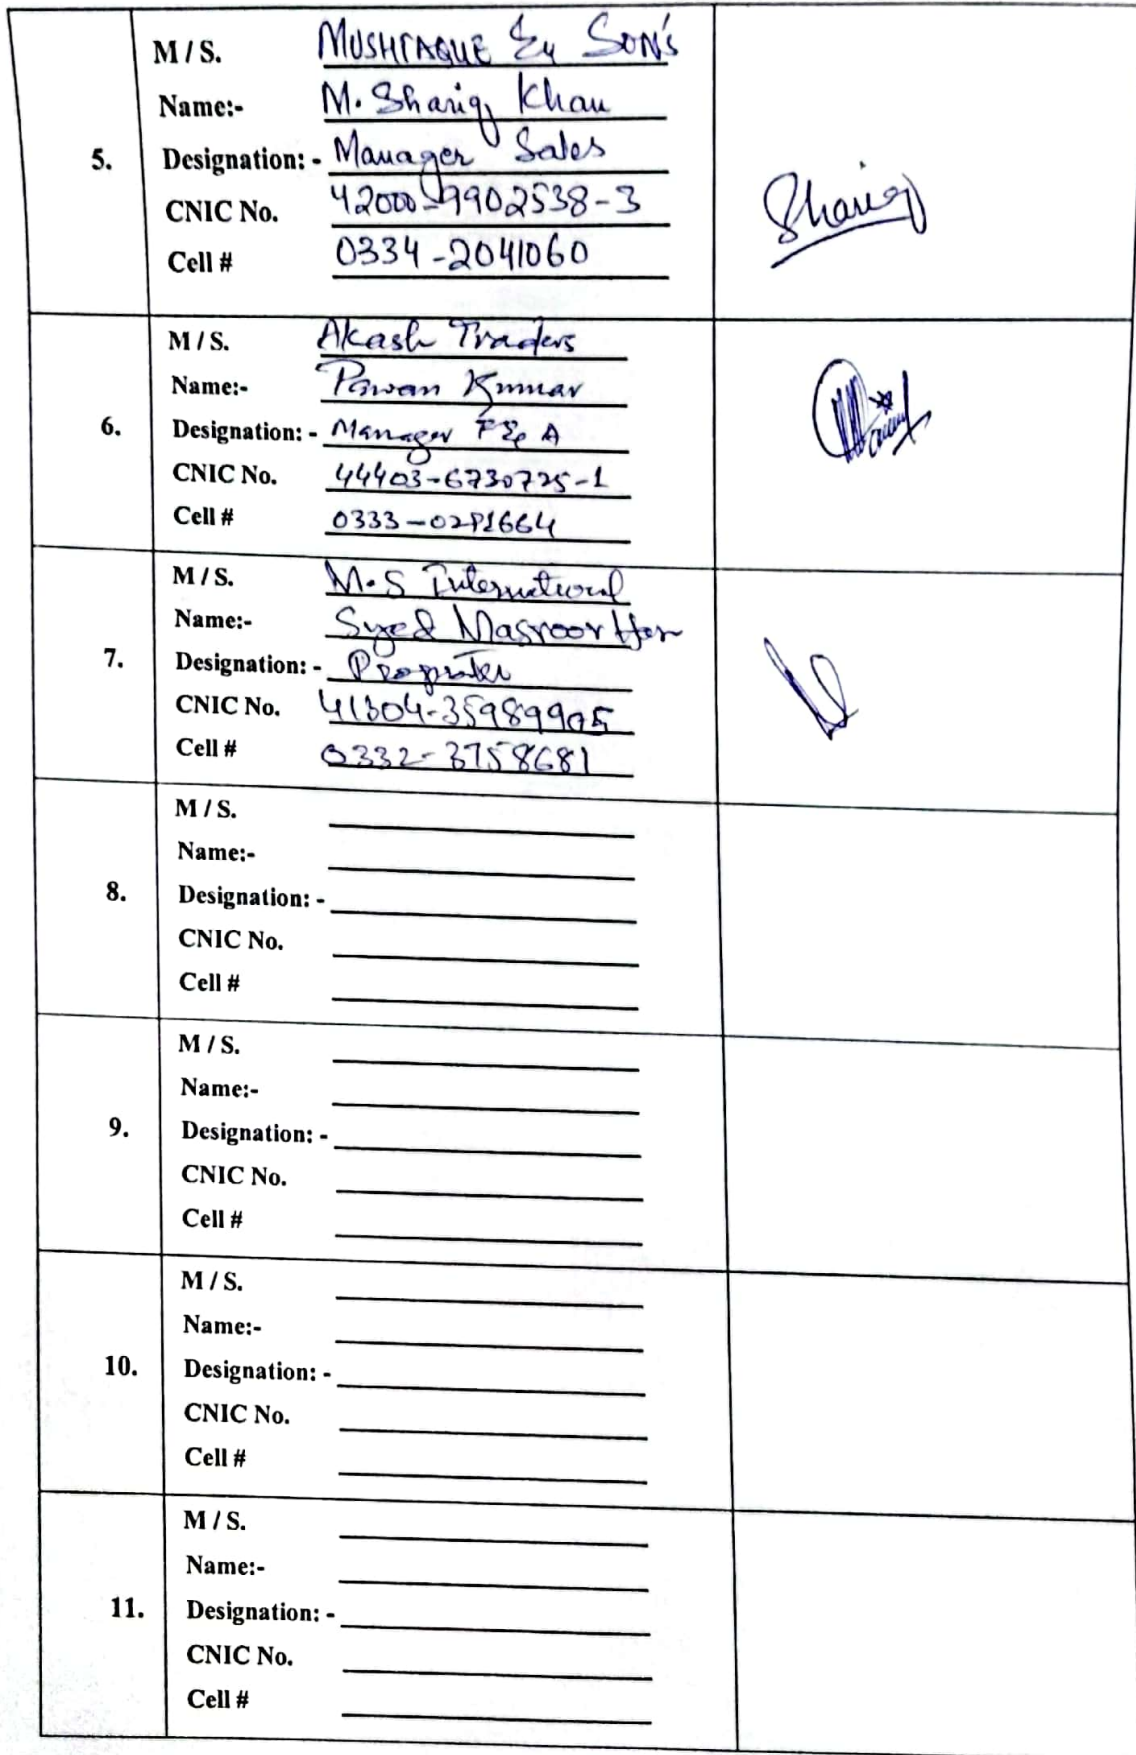 5.
M / S. MUSHTAQUE & SON'S
Name:- M. Shariq Khan
Designation: - Manager Sales
CNIC No. 42000-9902538-3
Cell # 0334-2041060
Shariq
6.
M / S. Akash Traders
Name:- Pawan Kumar
Designation: - Manager F & A
CNIC No. 44403-6730725-1
Cell # 0333-
7.
M / S. M.S International
Name:- Syed Masroor
Designation: -
CNIC No.
Cell # 0332-3758681
8.
M / S.
Name:-
Designation: -
CNIC No.
Cell #
9.
M / S.
Name:-
Designation: -
CNIC No.
Cell #
10.
M / S.
Name:-
Designation: -
CNIC No.
Cell #
11.
M / S.
Name:-
Designation: -
CNIC No.
Cell #